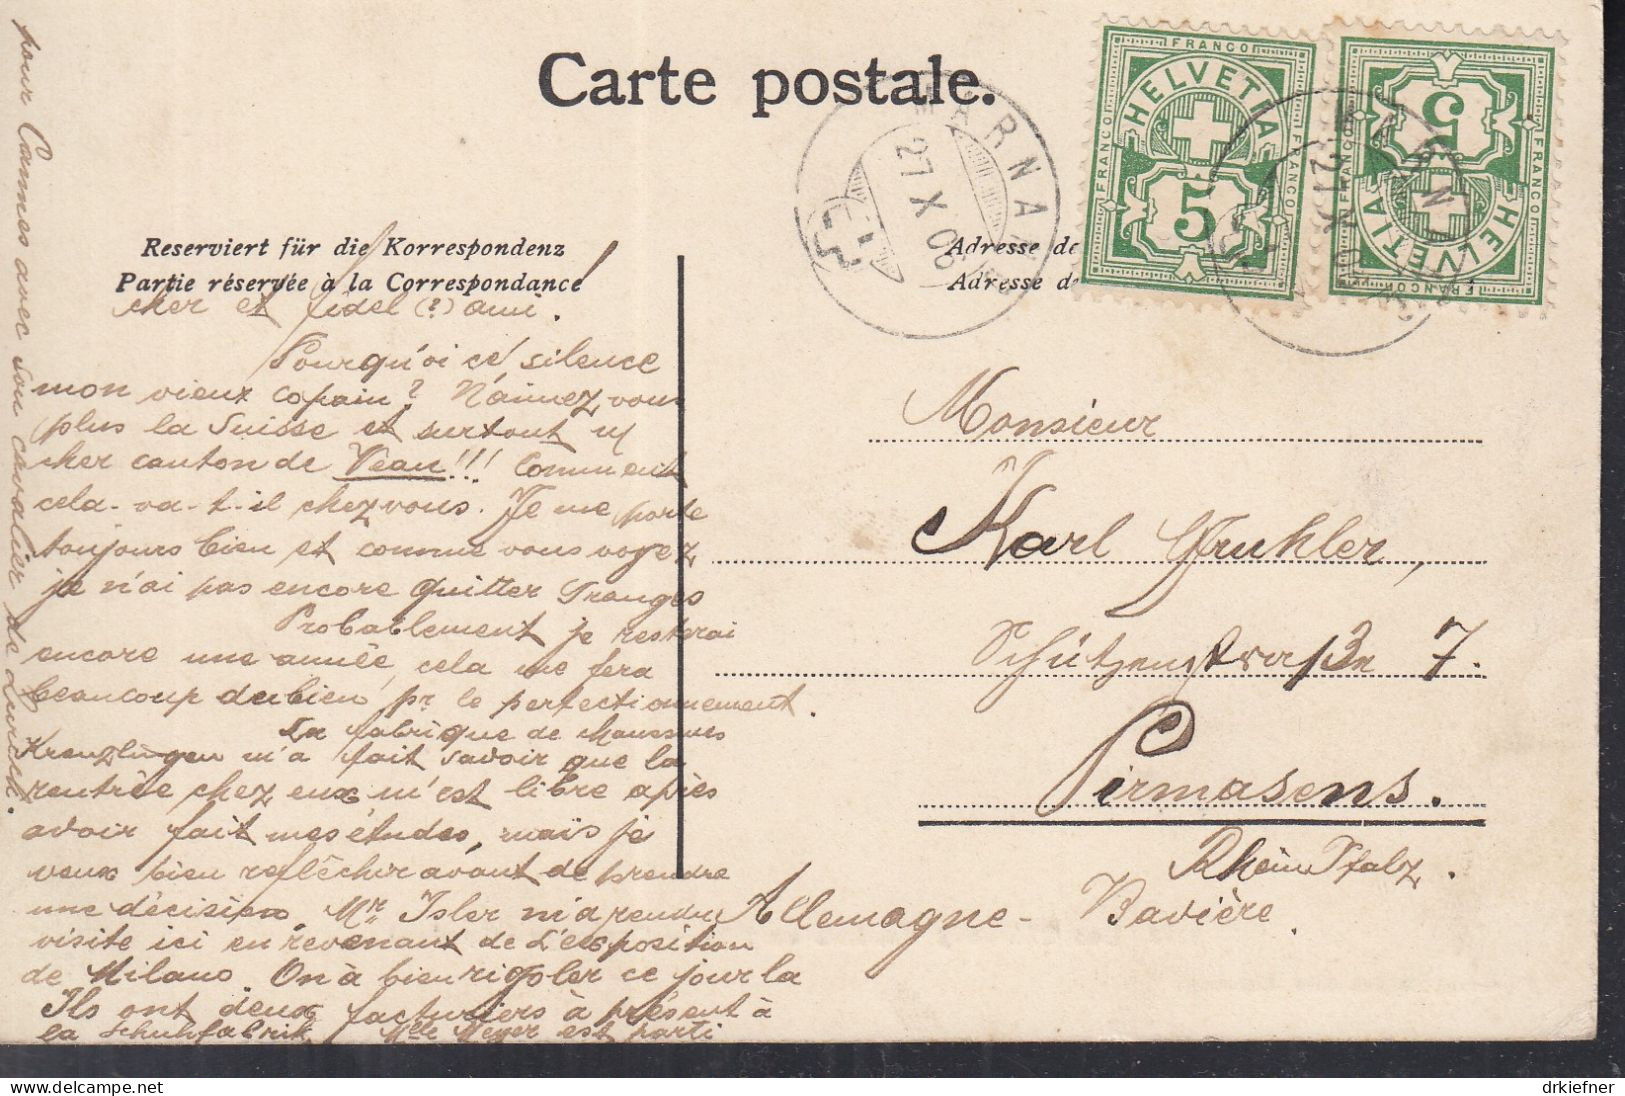 Carte postale.
FRANCO HELVETIA 5 FRANCO FRANCO
FRANCO HELVETIA 5 FRANCO FRANCO
27 X 06
Reserviert für die Korrespondenz
Partie réservée à la Correspondance
Adresse de
Adresse de
cher et fidel (?) ami!
Pourqu'oi ce silence
mon vieux copain? N'aimez vous
plus la Suisse et surtout
cher canton de Veau!!! Comment
cela-va-t-il chez vous. Je me porte
toujours bien et comme vous voyez
je n'ai pas encore quitter Granges
Probablement je resterai
encore une année, cela me fera
beaucoup du bien, pr. le perfectionnement.
La fabrique de chaussures
Kreuzlingen m'a fait savoir que la
rentrée chez eux m'est libre après
avoir fait mes études, mais je
veux bien reflêchir avant de prendre
une décision. Mr Isler m'a rendu
visite ici en revenant de l'exposition
de Milano. On à bien rigoler ce jour la
Ils ont deux facturiers à présent à
la Schuhfabrik, Mlle Meyer est parti
pour Cannes avec son cavalier de Zurich.
Monsieur
Karl Gruhler,
Schützenstraße 7.
Pirmasens.
RheinPfalz.
Allemagne - Bavière.
drkiefner